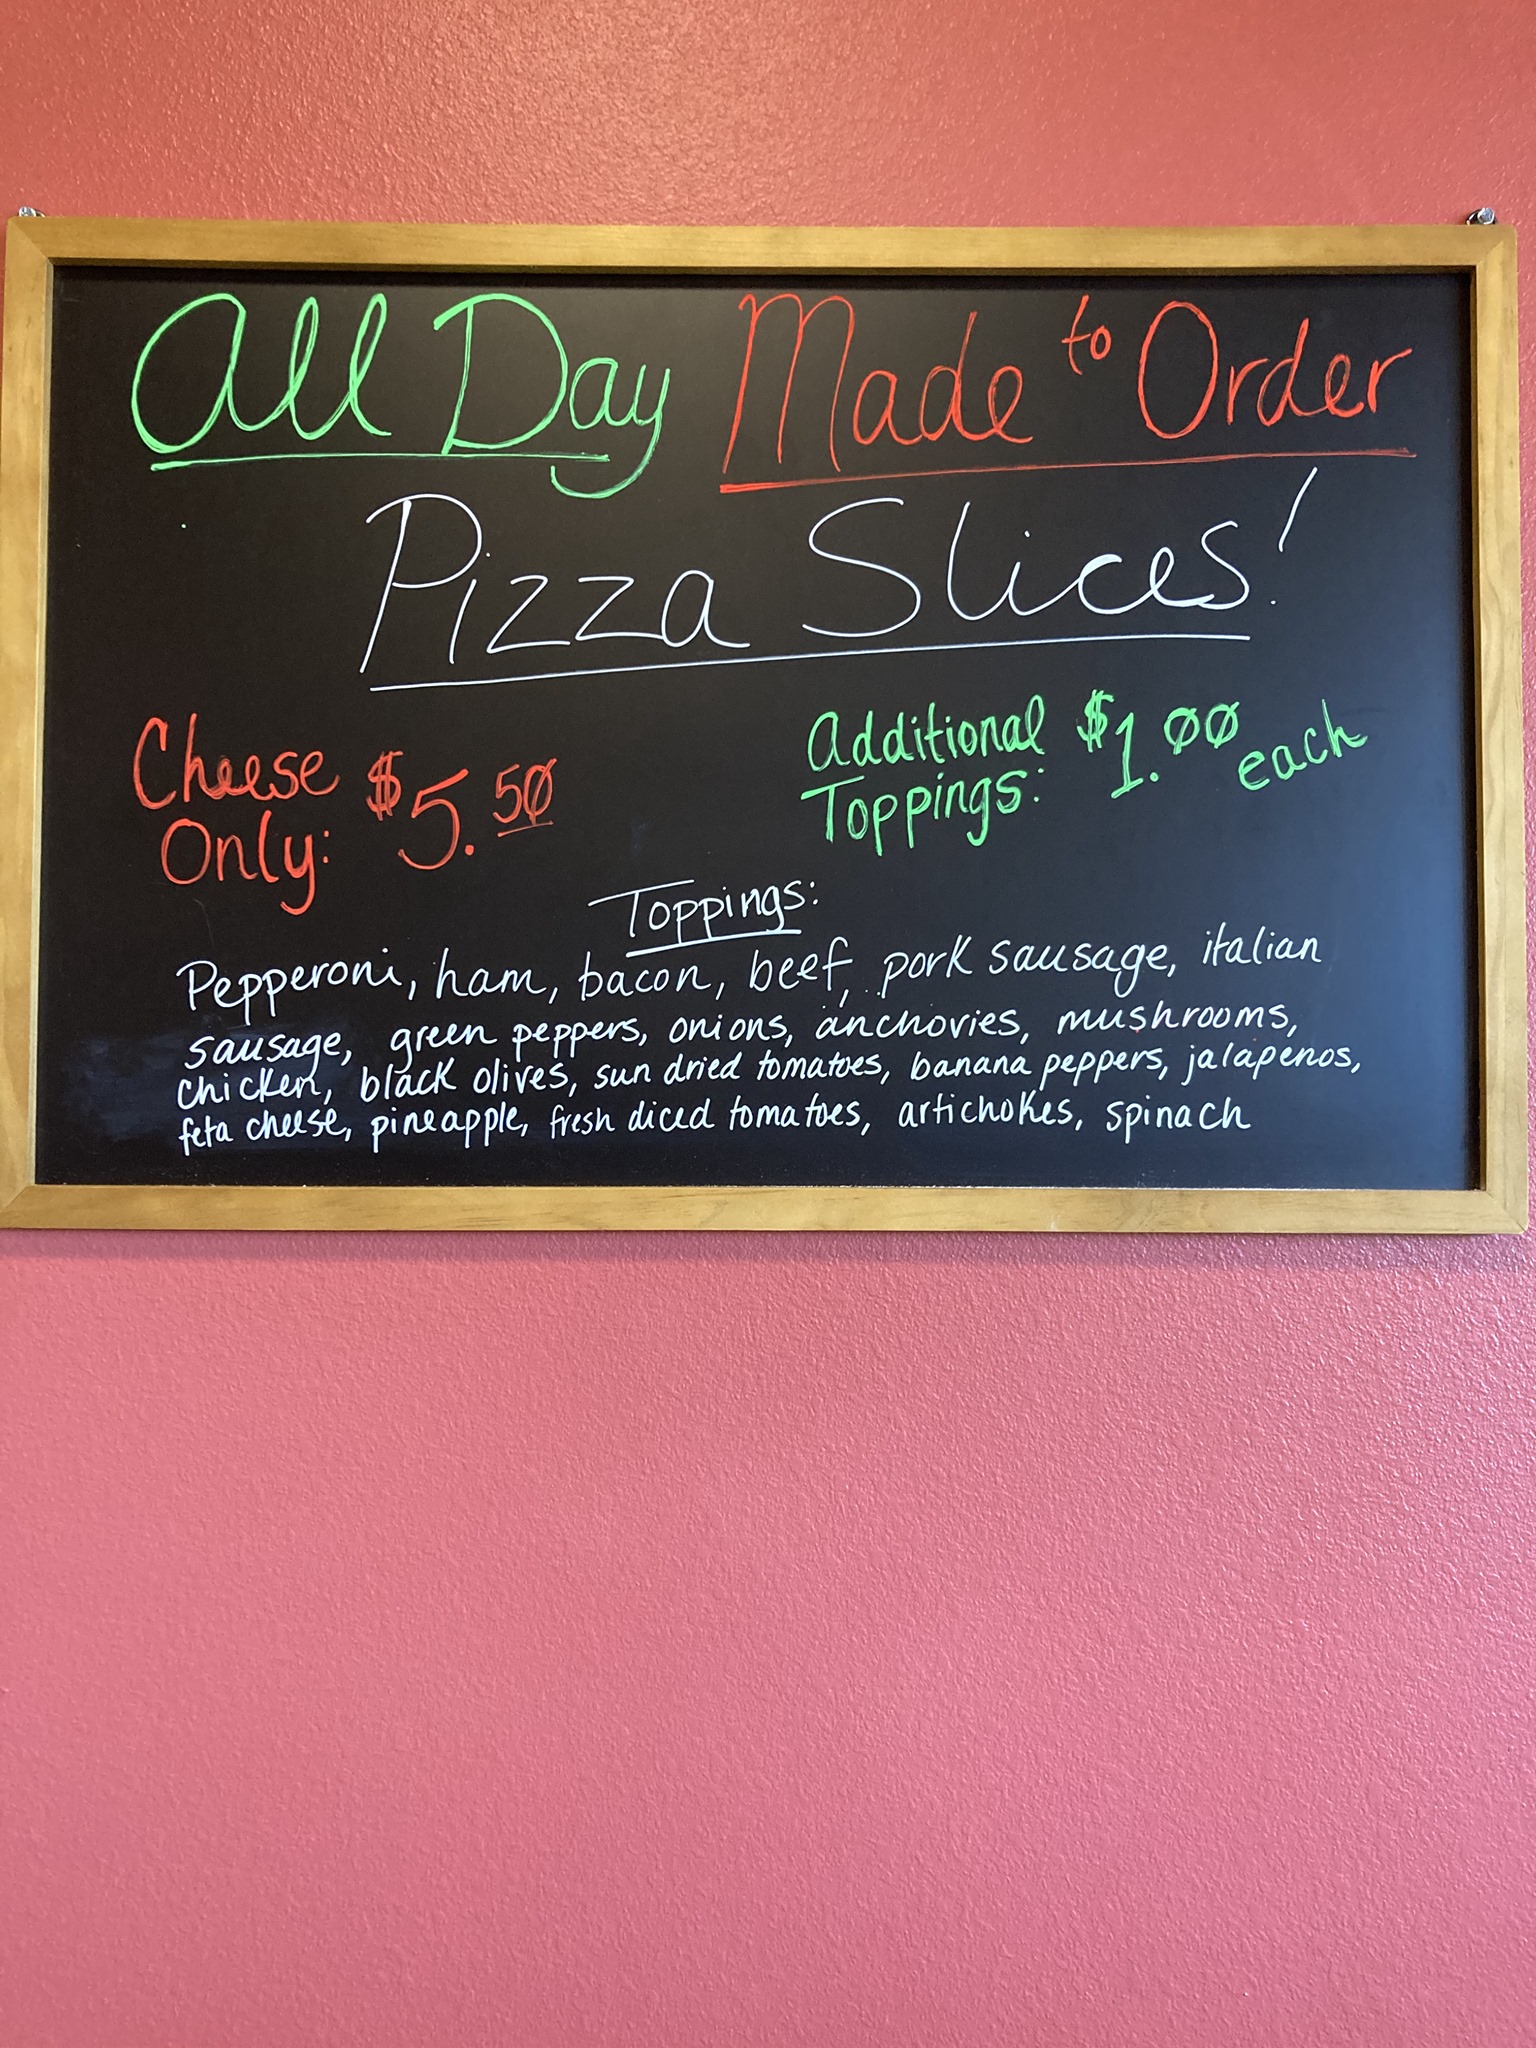 All Day Made to Order
Pizza Slices!
Cheese
Only: $5.50
Additional
Toppings: $1.00 each
Toppings:
Pepperoni, ham, bacon, beef, pork sausage, italian
sausage, green peppers, onions, anchovies, mushrooms,
chicken, black olives, sun dried tomatoes, banana peppers, jalapenos,
feta cheese, pineapple, fresh diced tomatoes, artichokes, spinach